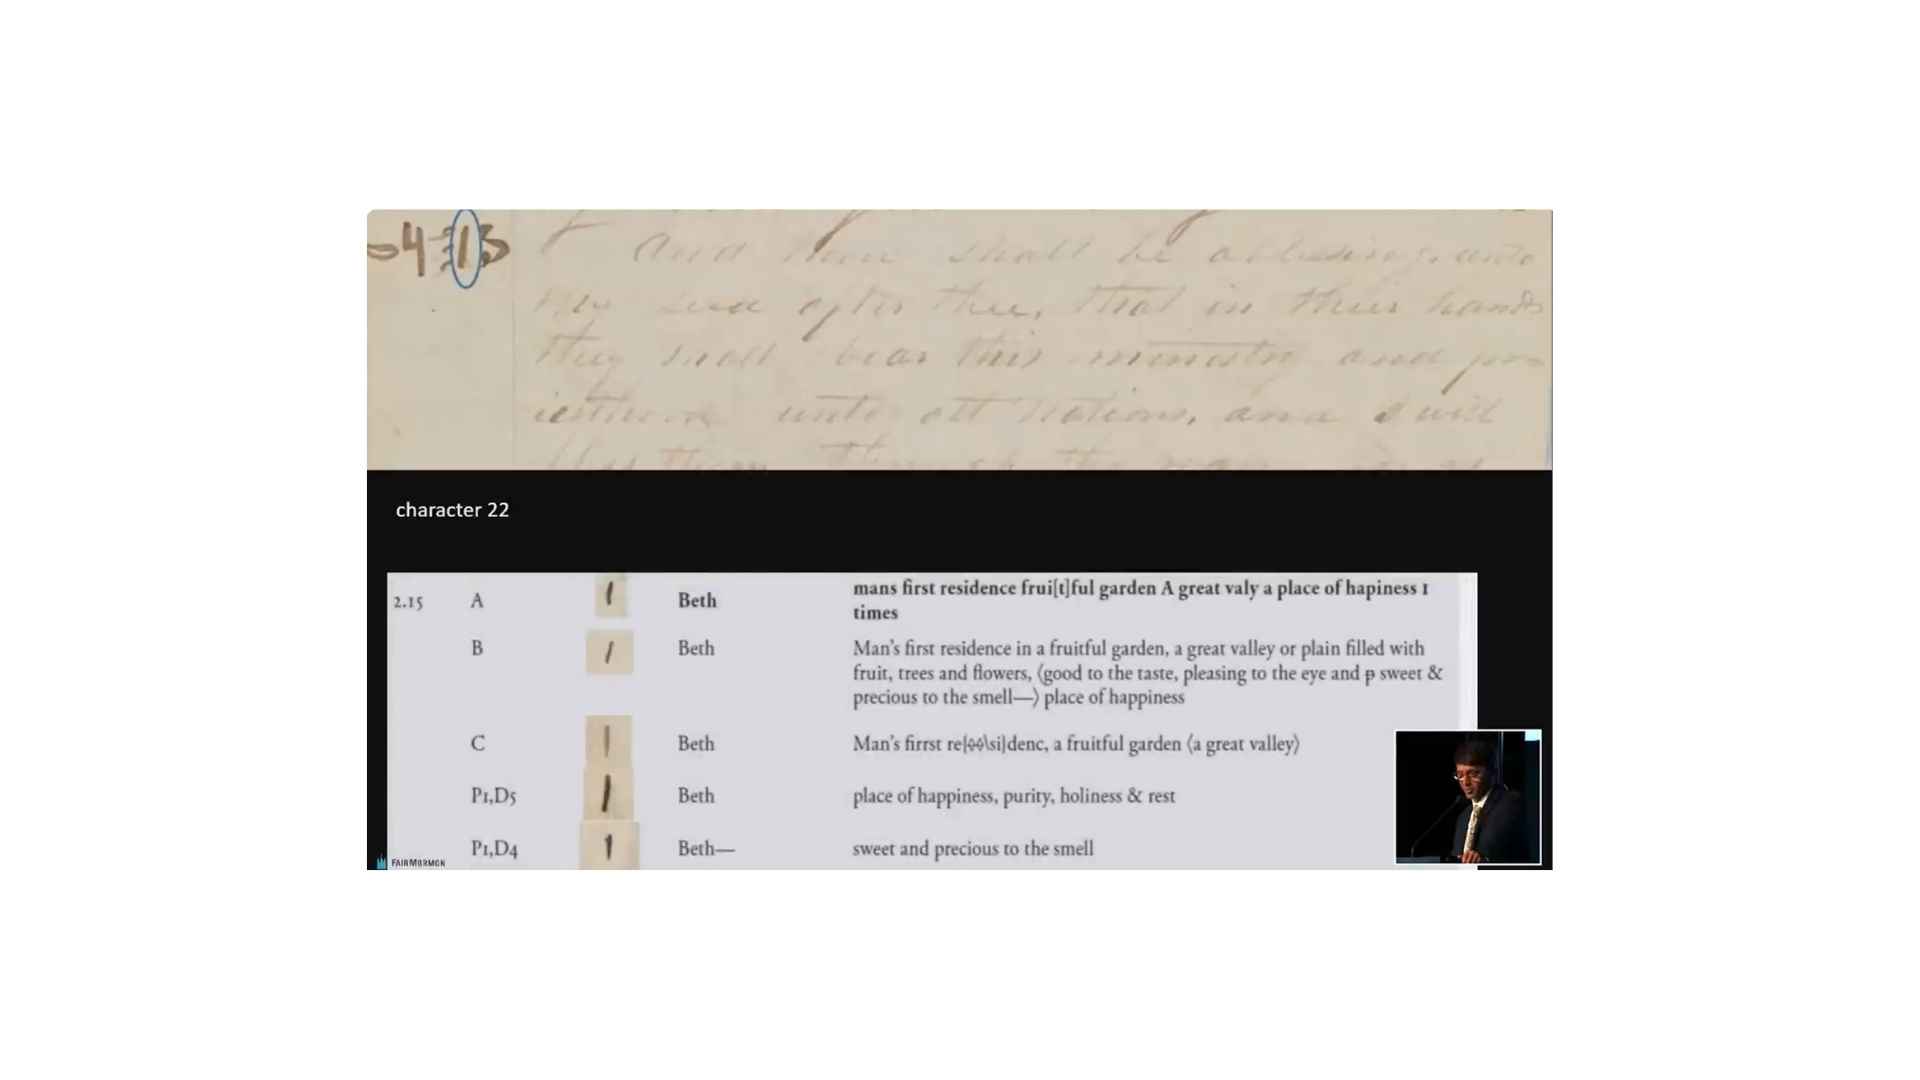 And thou shall be a blessing unto
thy seed after thee, that in their hands
they shall bear this ministry and pr
iesthood unto all Nations, and I will
bless them through
character 22
2.15 A Beth mans first residence frui[t]ful garden A great valy a place of hapiness 1
times
B Beth Man's first residence in a fruitful garden, a great valley or plain filled with
fruit, trees and flowers, ⟨good to the taste, pleasing to the eye and p sweet &
precious to the smell—⟩ place of happiness
C Beth Man's firrst re[◊◊\si]denc, a fruitful garden ⟨a great valley⟩
P1,D5 Beth place of happiness, purity, holiness & rest
P1,D4 Beth— sweet and precious to the smell
FAIRMORMON